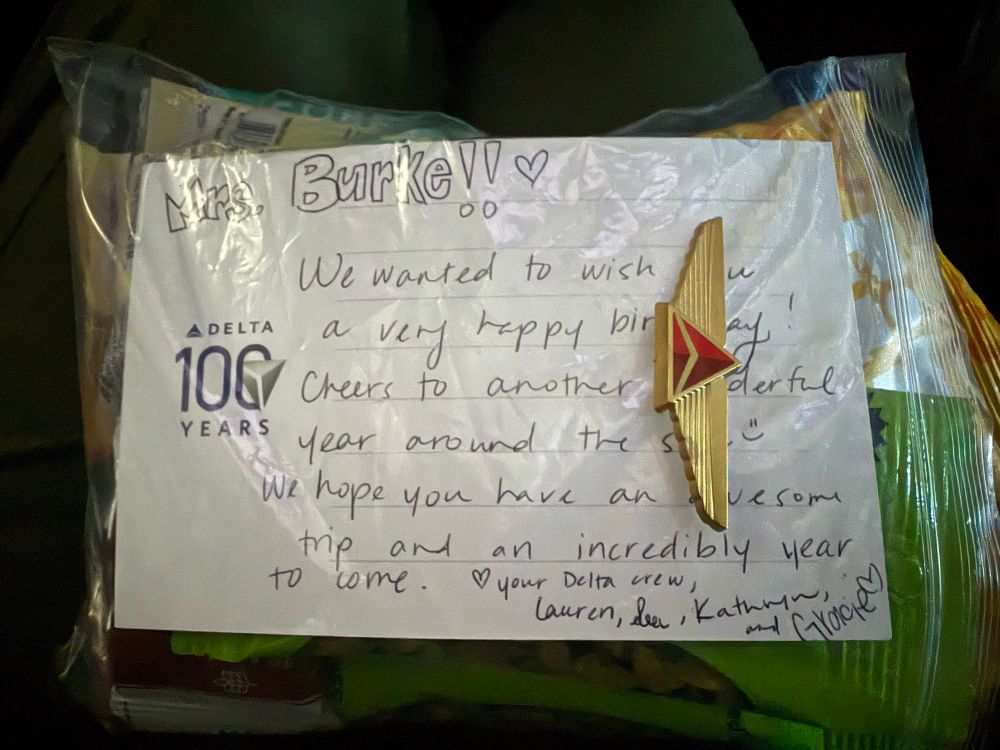 Mrs. Burke!! ♡
We wanted to wish u
a very happy bir ay!
DELTA
100
YEARS
Cheers to another derful
year around the s . ☺
We hope you have an wesome
trip and an incredibly year
to come. ♡ your Delta crew,
Lauren, , Kathryn,
and Gracie ♡